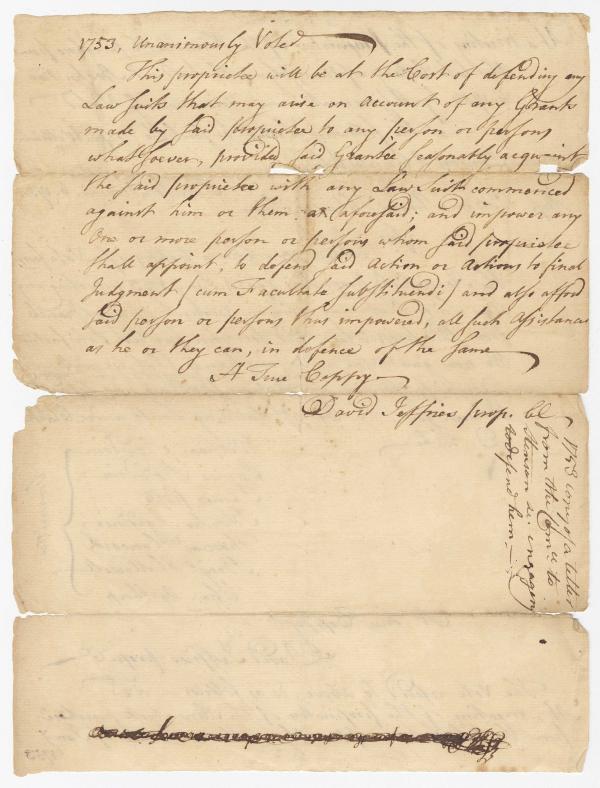 1753, Unanimously Voted
This proprietee will be at the Cost of defending any
Law Suits that may arise on Account of any Grants
made by said proprietee to any person or persons
whatsoever, provided said Grantee seasonably acquaint
the said proprietee with any Law Suits commenced
against him or them as aforesaid; and impower any
One or more person or persons whom said proprietee
shall appoint, to defend said Action or Actions to final
Judgment (cum Facultate Substituendi) and also afford
said person or persons thus impowered, all such Assistance
as he or they can, in defence of the same
A True Coppy
David Jeffries prop. Cl
1753 copy of a letter
from the Comee to
Stinson &c engageing
to defend him